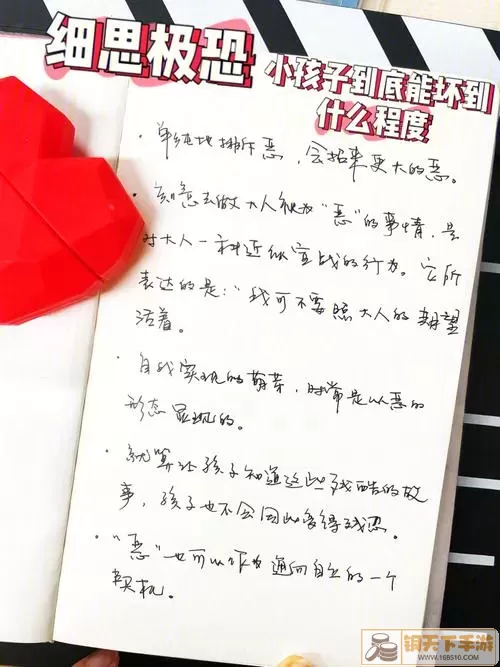 细思极恐
小孩子到底能坏到
什么程度
·单纯地排斥恶，会招来更大的恶。
·刻意去做大人视为“恶”的事情，是
对大人一种近似宣战的行为。它所
表达的是：“我可不要照大人的期望
活着。
·自我实现的萌芽，时常是以恶的
形态显现的。
·就算让孩子知道这些残酷的故
事，孩子也不会因此变得残忍。
·“恶”也可以作为通向自立的一个
契机。
铜天下手游
www.168510.com